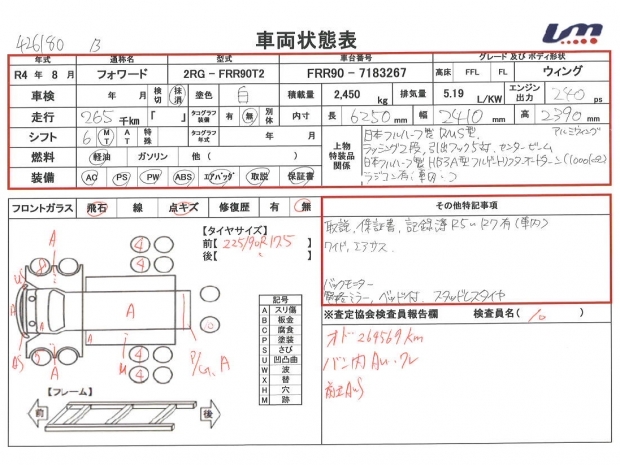 426180 B
車両状態表
um
年式 通称名 型式 車台番号 グレード及びボディ形状
R4 年 8 月 フォワード 2RG - FRR90T2 FRR90 - 7183267 高床 FFL FL ウィング
車検 年 月 検切 抹消 塗色 白 積載量 2,450 kg 排気量 5.19 L/KW エンジン出力 240 ps
走行 265 千km 「 」 タコグラフ装備 有 無 別体 内寸 長 6250 mm 幅 2410 mm 高 2390 mm
シフト 6 MT AT 特殊 タコグラフ年式 年 月
上物特装品関係
日本フルハーフ製 アルミウィング
ラッシング2段, 引出フック5対, センタービーム
日本フルハーフ製
ラジコン有(車内)
燃料 軽油 ガソリン 他 ( )
装備 AC PS PW ABS エアバッグ 取説 保証書
フロントガラス 飛石 線 点キズ 修復歴 有 無
その他特記事項
取説, 保証書, 記録簿 有(車内)
ワイド, エアサス
バックモニター
ベッド付, スタッドレスタイヤ
【タイヤサイズ】
前【 225/90R17.5 】
後【 〃 】
A
A
A
A
8
4
4
4
4
10
記号
A スリ傷
B 板金
C 腐食
P 塗装
S さび
U 凹凸曲
W 波
X 替
H 穴
M 跡
【フレーム】
前
後
※査定協会検査員報告欄 検査員名( )
オド 264569km
バン内 AU・クレ